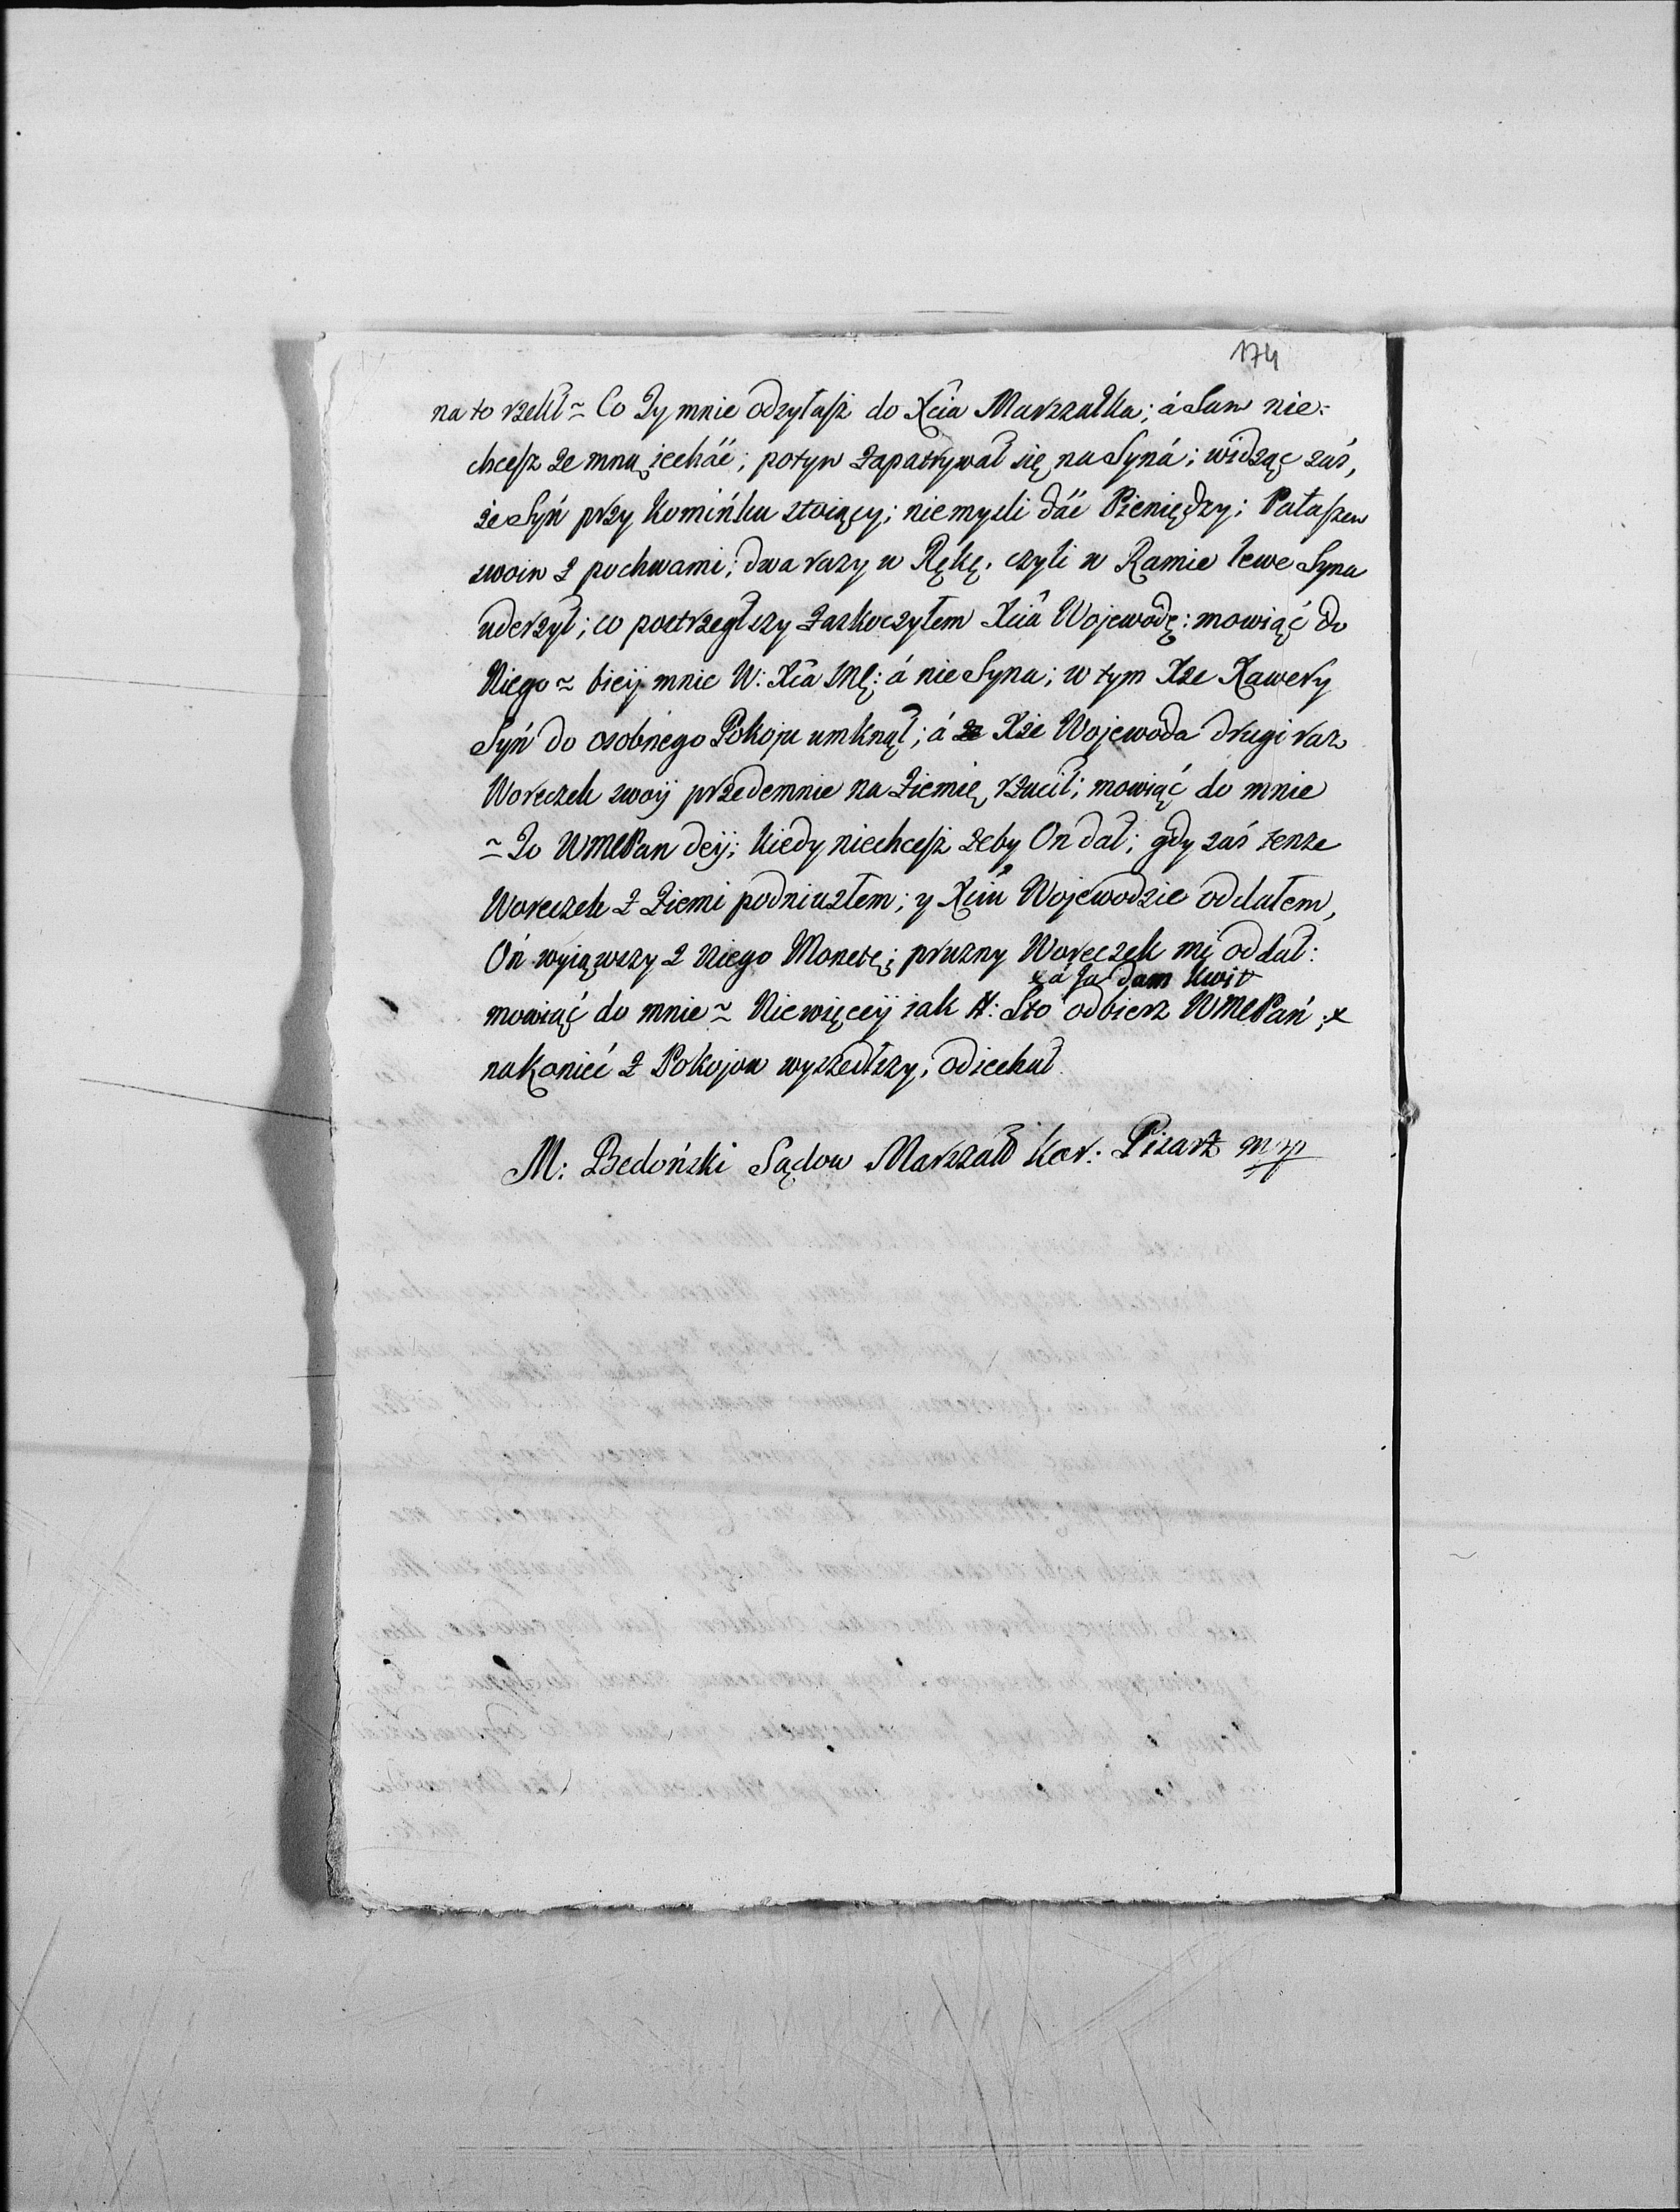 174
na to rzekł ~ Co Ty mnie odsyłasz do Xcia Marszałka; á Sam nie:
chcesz ze mną iecháć; potym zapatrywał się na Syná; widząc zaś,
że Syń przy Komińku stoiący; niemysli dáć Pieniędzy; Pałaszem
swoim z pochwami; dwa razy w Rękę. czyli w Ramie lewe Syna
uderzył; co postrzegłszy zaskoczyłem Xcia Wojewodę: mowiąć do
Niego ~ bieÿ mnie W: Xca Mć: á nie Syna; w tym Xze Xawery
Syń do osobnego Pokoju umknął; á Xże Wojewoda drugi raz
Woreczek swoÿ przedemnie na Ziemię rzucił; mowiąć do mnie
~ To WMPan deÿ; kiedy niechcesz żeby On dał; gdy zaś tenze
Woreczek z Ziemi podniuzłem; y Xciu Wojewodzie oddałem,
Oń wyiąwszy z Niego Monetę; pruzny Woreczek mi oddał:
x á Ja dam Kwit
mowiąć do mnie ~ Niewięceÿ iak #: Sto odbierz WMPań; x
nakonieć z Pokojow wyszedłszy, odiechał
M: Bedoński Sądow Marszał Kor: Pisarz mp